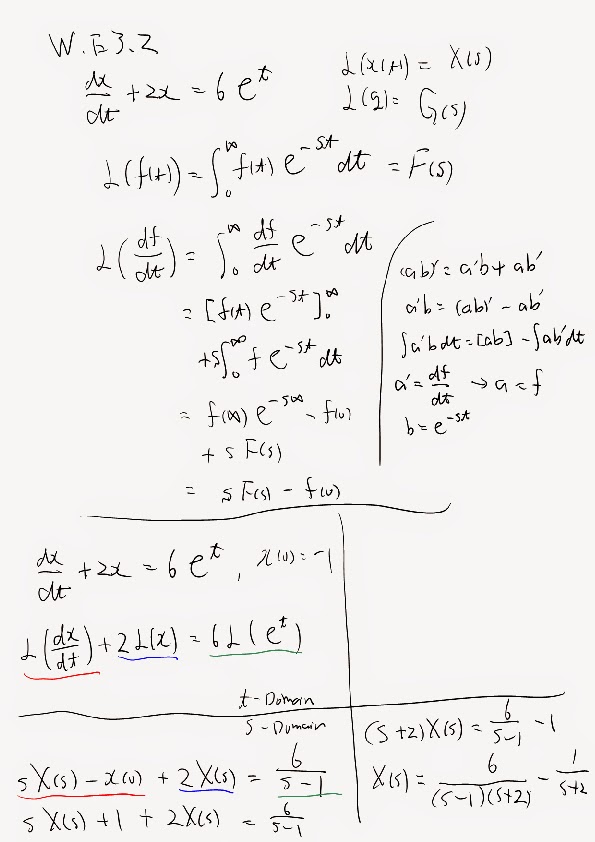 W.E3.2
dx/dt + 2x = 6e^t
L(x(t)) = X(s)
L(g) = G(s)
L(f(t)) = ∫₀^∞ f(t) e^{-st} dt = F(s)
L(df/dt) = ∫₀^∞ df/dt e^{-st} dt
= [f(t) e^{-st}]₀^∞
+s∫₀^∞ f e^{-st} dt
= f(∞) e^{-s∞} - f(0)
+ s F(s)
= s F(s) - f(0)
(ab)' = a'b + ab'
a'b = (ab)' - ab'
∫a'b dt = [ab] - ∫ab' dt
a' = df/dt → a = f
b = e^{-st}
dx/dt + 2x = 6e^t, x(0) = -1
L(dx/dt) + 2L(x) = 6L(e^t)
t-Domain
s-Domain
sX(s) - x(0) + 2X(s) = 6/(s-1)
sX(s) + 1 + 2X(s) = 6/(s-1)
(s+2)X(s) = 6/(s-1) - 1
X(s) = 6/((s-1)(s+2)) - 1/(s+2)